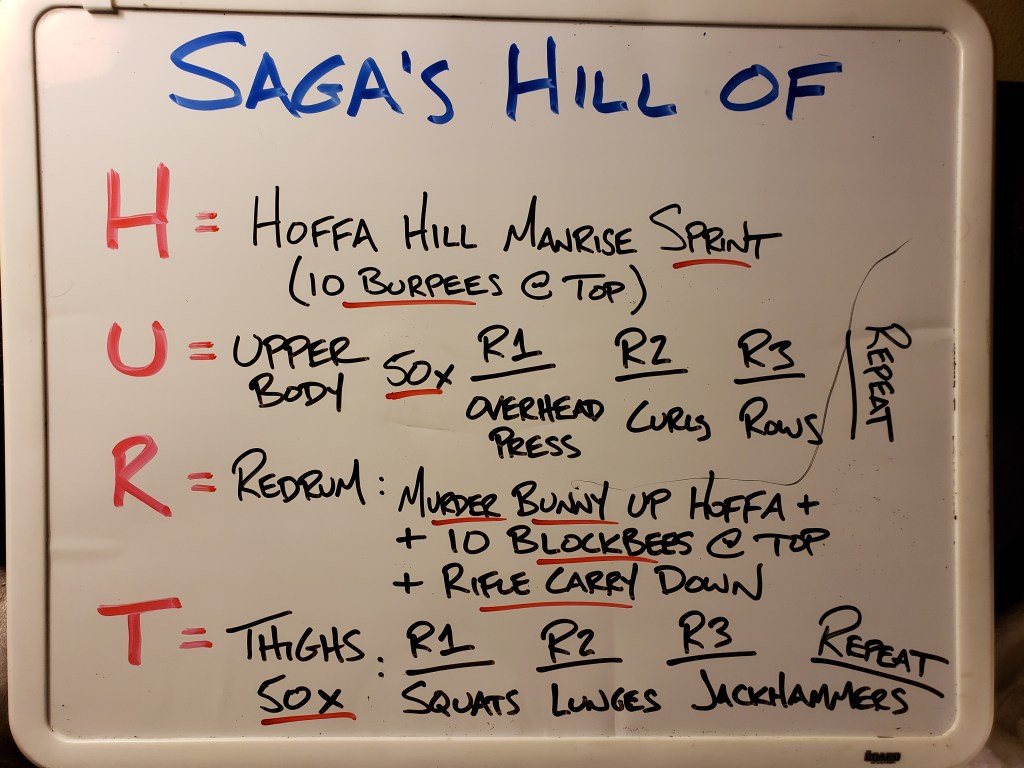 SAGA'S HILL OF
H = HOFFA HILL MANRISE SPRINT
(10 BURPEES @ TOP)
U = UPPER BODY 50x R1 R2 R3 REPEAT
OVERHEAD PRESS CURLS ROWS
R = REDRUM: MURDER BUNNY UP HOFFA +
+ 10 BLOCKBEES @ TOP
+ RIFLE CARRY DOWN
T = THIGHS: R1 R2 R3 REPEAT
50X SQUATS LUNGES JACKHAMMERS
THE BOARD